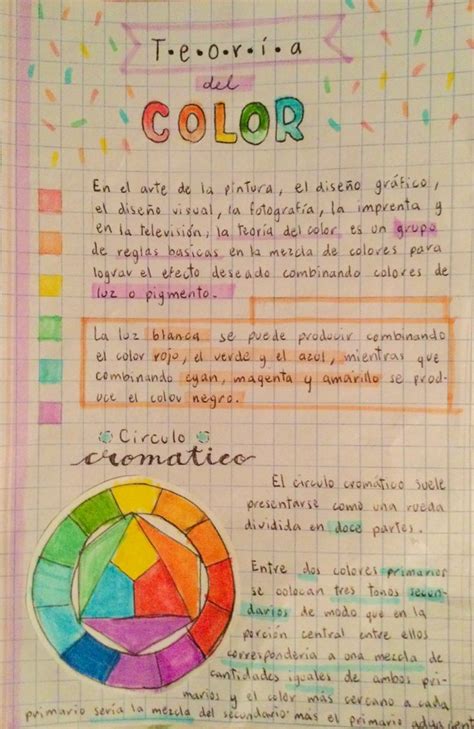 T·e·o·r·í·a
del
COLOR
En el arte de la pintura, el diseño gráfico,
el diseño visual, la fotografía, la imprenta y
en la televisión, la teoría del color es un grupo
de reglas basicas en la mezcla de colores para
lograr el efecto deseado combinando colores de
luz o pigmento.
La luz blanca se puede producir combinando
el color rojo, el verde y el azul, mientras que
combinando cyan, magenta y amarillo se prod-
uce el color negro.
Círculo
cromatico
El círculo cromatico suele
presentarse como una rueda
dividida en doce partes.
Entre dos colores primarios
se colocan tres tonos secun-
darios de modo que en la
porción central entre ellos
correspondería a una mezcla de
cantidades iguales de ambos pri-
marios y el color más cercano a cada
primario sería la mezcla del secundario más el primario adyacente